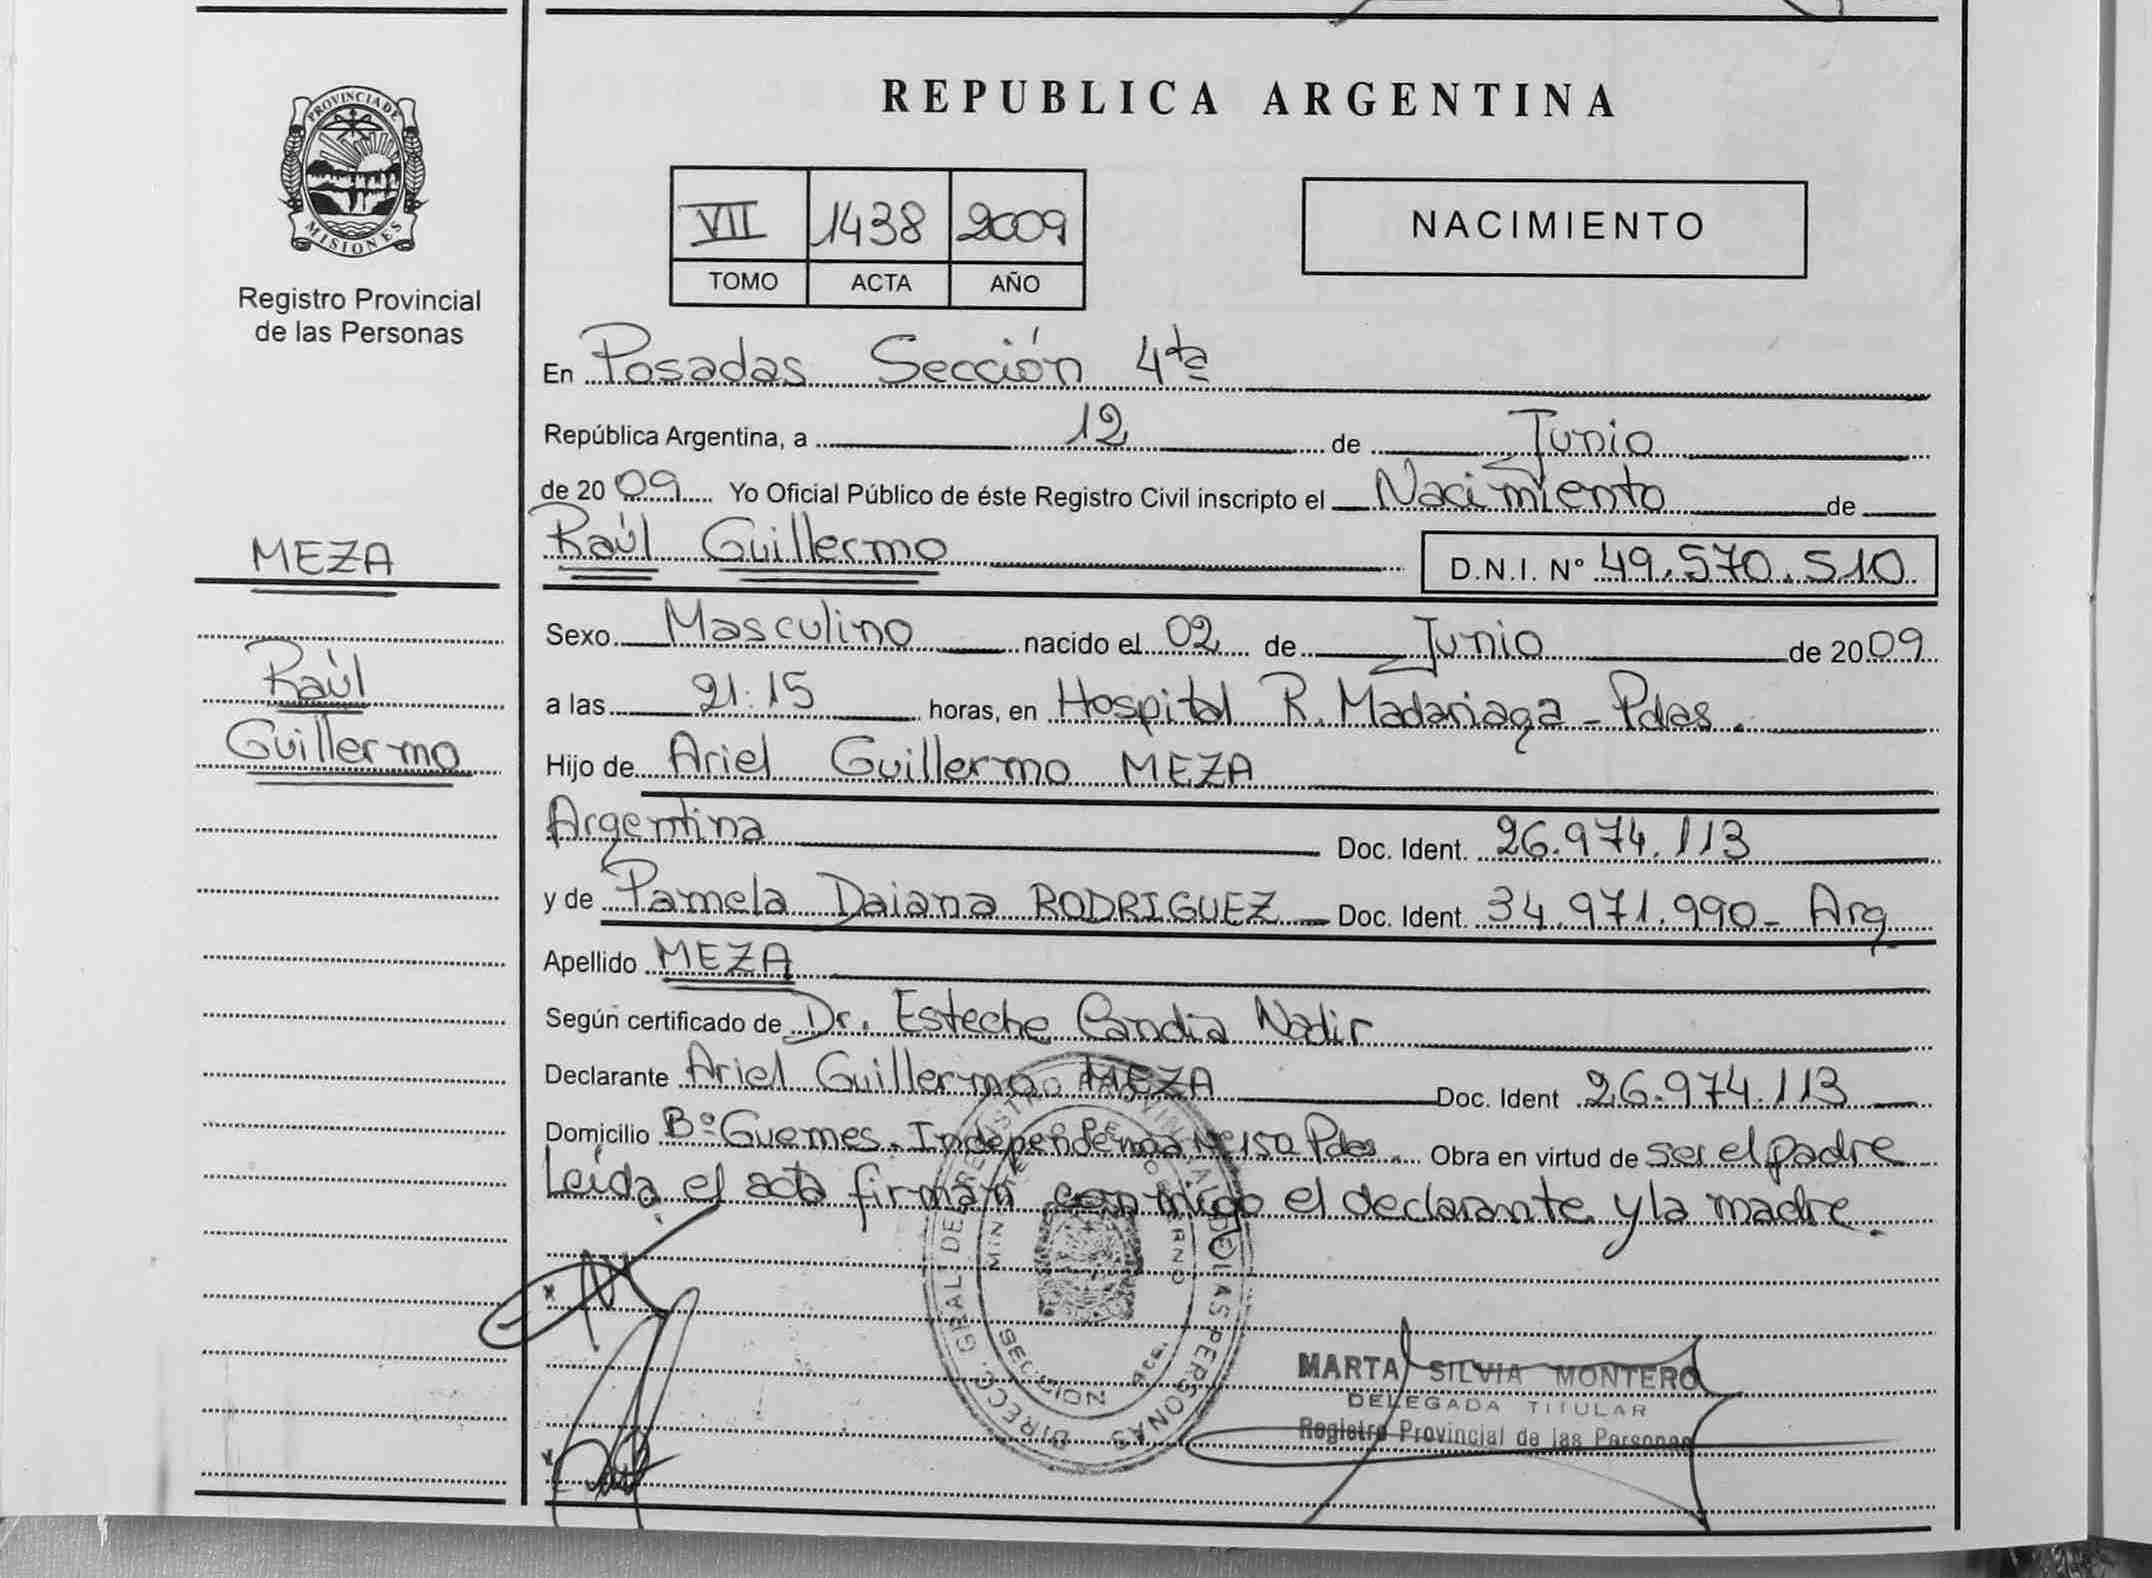 PROVINCIA DE
MISIONES
Registro Provincial
de las Personas
MEZA
Raúl
Guillermo
REPUBLICA ARGENTINA
VII 1438 2009
TOMO ACTA AÑO
NACIMIENTO
En Posadas Sección 4ta
República Argentina, a 12 de Junio
de 2009 Yo Oficial Público de éste Registro Civil inscripto el Nacimiento de
Raúl Guillermo D.N.I. Nº 49.570.510
Sexo Masculino nacido el 02 de Junio de 2009
a las 21:15 horas, en Hospital R. Madariaga - Pdas.
Hijo de Ariel Guillermo MEZA
Argentina Doc. Ident. 26.974.113
y de Pamela Daiana RODRIGUEZ Doc. Ident. 34.971.990- Arg
Apellido MEZA
Según certificado de Dr. Esteche Candia Nadir
Declarante Ariel Guillermo MEZA Doc. Ident 26.974.113
Domicilio Bº Guemes. Independencia Pdas. Obra en virtud de ser el padre
Leída el acta firman conmigo el declarante y la madre.
DIRECC. GRAL DE REGISTRO PROVINCIAL DE LAS PERSONAS
SECCION
MARTA SILVIA MONTERO
DELEGADA TITULAR
Registro Provincial de las Personas